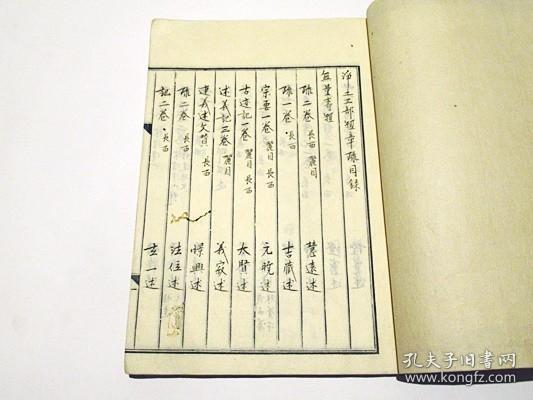 淨土三部經章疏目錄
無量壽經
疏二卷 麗目 慧遠述
疏一卷 長西 吉藏述
宗要一卷 麗目 長西 元曉述
古迹記一卷 麗目 長西 太賢述
述義記三卷 麗目 長西 義寂述
連義述文賛 長西 憬興述
疏二卷 長西 法位述
記二卷 長西 玄一述
孔夫子旧书网
www.kongfz.com